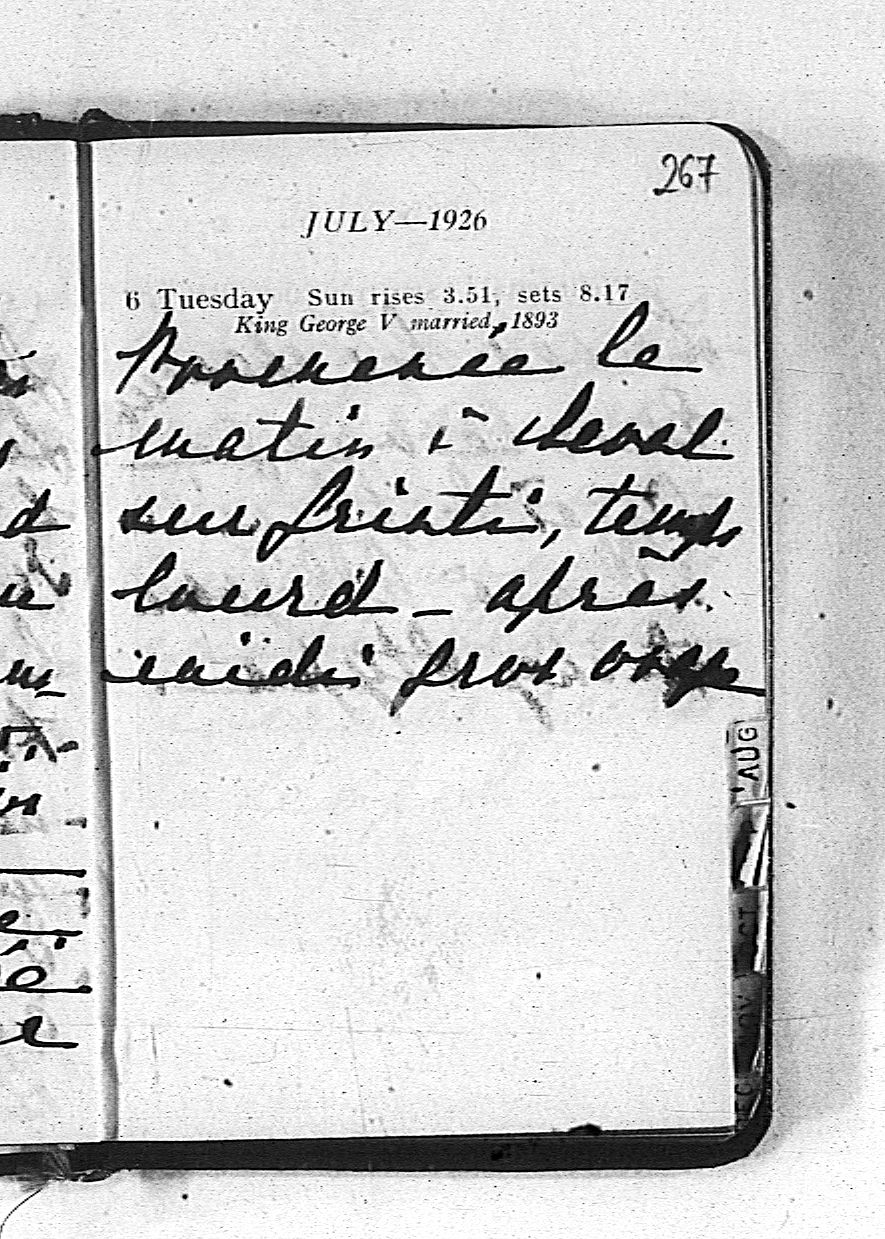 267
JULY—1926
6 Tuesday Sun rises 3.51, sets 8.17
King George V married, 1893
Promenée le
matin à cheval
sur
temps
lourd — après
midi gros orage
AUG